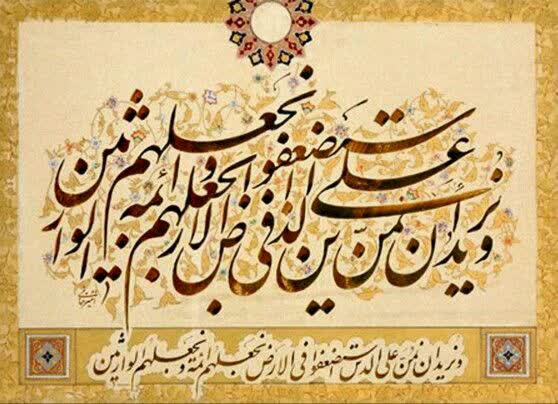 و نرید أن نمنّ علی الذین استضعفوا فی الارض و نجعلهم ائمة و نجعلهم الوارثین
و نرید ان نمنّ علی الذین استضعفوا فی الارض و نجعلهم ائمة و نجعلهم الوارثین